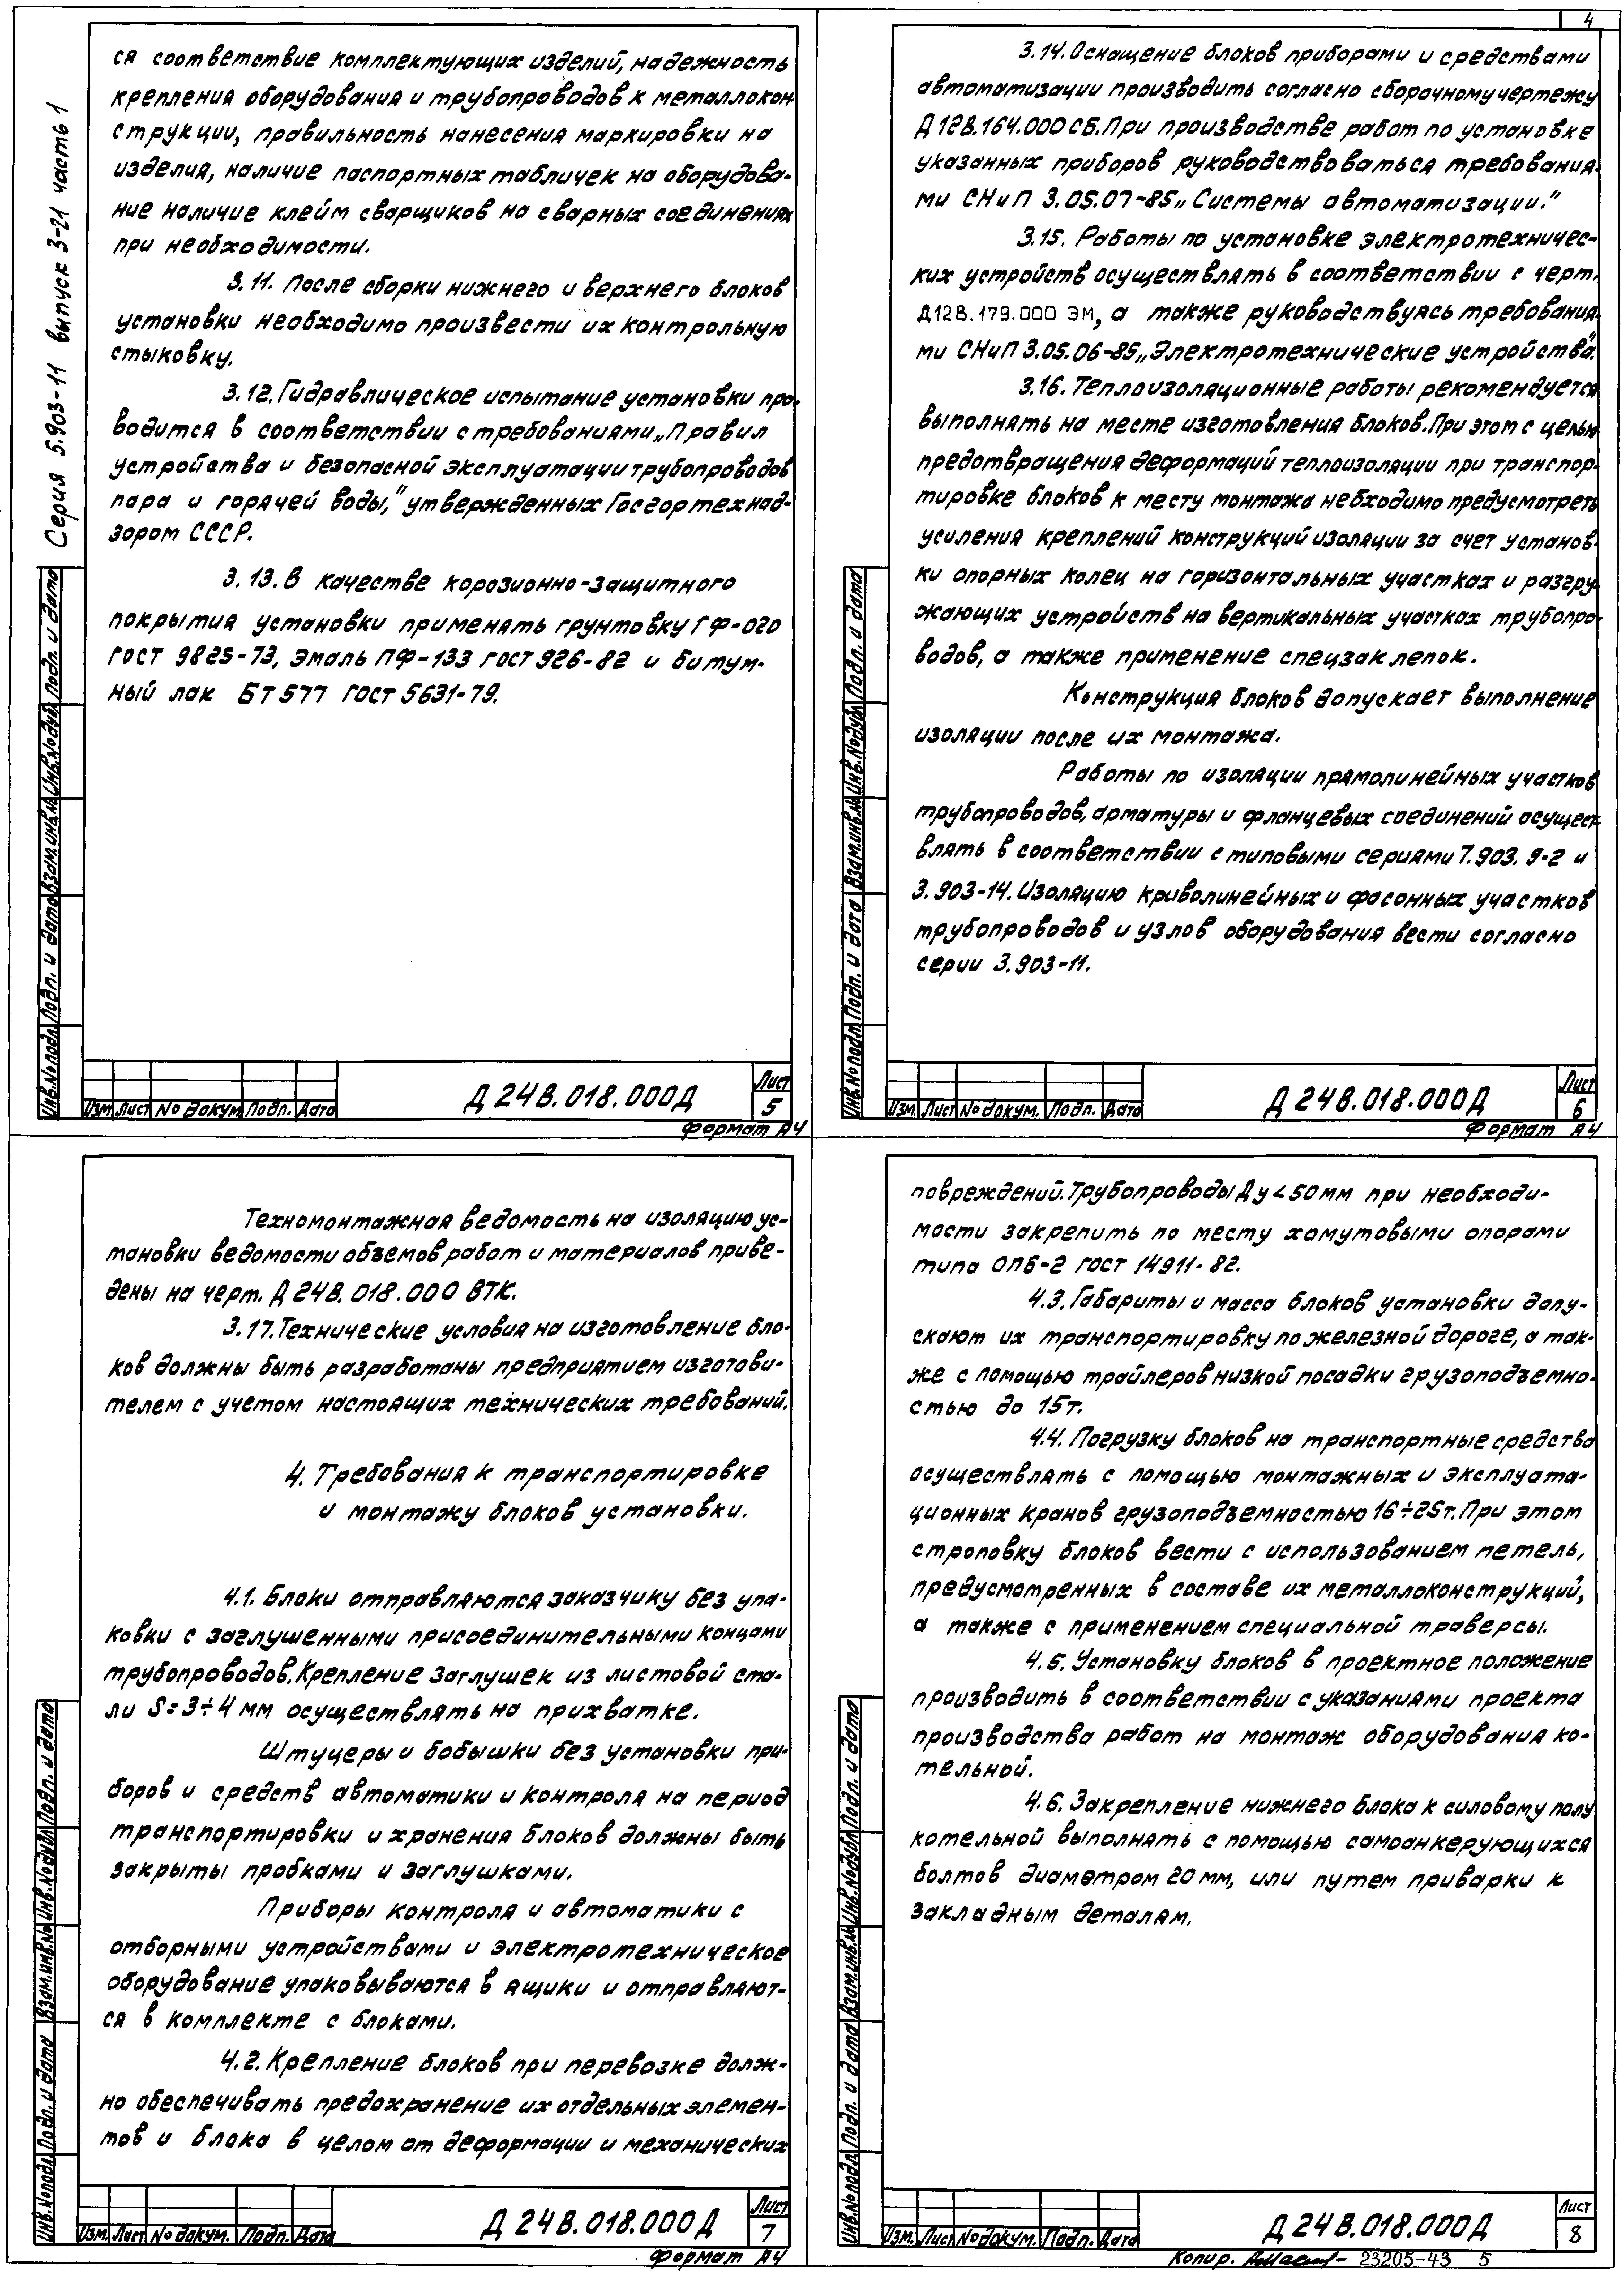 4
Серия 5.903-11 выпуск 3-21 часть 1
ся соответствие комплектующих изделий, надежность
крепления оборудования и трубопроводов к металлокон-
струкции, правильность нанесения маркировки на
изделия, наличие паспортных табличек на оборудова-
ние наличие клейм сварщиков на сварных соединениях
при необходимости.
3.11. После сборки нижнего и верхнего блоков
установки необходимо произвести их контрольную
стыковку.
3.12. Гидравлическое испытание установки про-
водится в соответствии с требованиями „Правил
устройства и безопасной эксплуатации трубопроводов
пара и горячей воды,” утвержденных Госгортехнад-
зором СССР.
3.13. В качестве корозионно-защитного
покрытия установки применять грунтовку ГФ-020
ГОСТ 9825-73, эмаль ПФ-133 ГОСТ 926-82 и битум-
ный лак БТ 577 ГОСТ 5631-79.
Инв.№подл. Подп. и дата Взам.инв.№ Инв.№дубл. Подп. и дата
Изм. Лист № докум. Подп. Дата
Д 24В.018.000Д
Лист
5
Формат А4
3.14. Оснащение блоков приборами и средствами
автоматизации производить согласно сборочному чертежу
Д 12В.164.000 СБ. При производстве работ по установке
указанных приборов руководствоваться требования-
ми СНиП 3.05.07-85 „Системы автоматизации.”
3.15. Работы по установке электротехничес-
ких устройств осуществлять в соответствии с черт.
Д12В.179.000 ЭМ, а также руководствуясь требования-
ми СНиП 3.05.06-85 „Электротехнические устройства”.
3.16. Теплоизоляционные работы рекомендуется
выполнять на месте изготовления блоков. При этом с целью
предотвращения деформаций теплоизоляции при транспор-
тировке блоков к месту монтажа необходимо предусмотреть
усиления креплений конструкций изоляции за счет установ-
ки опорных колец на горизонтальных участках и разгру-
жающих устройств на вертикальных участках трубопро-
водов, а также применение спецзаклепок.
Конструкция блоков допускает выполнение
изоляции после их монтажа.
Работы по изоляции прямолинейных участков
трубопроводов, арматуры и фланцевых соединений осущест-
влять в соответствии с типовыми сериями 7.903.9-2 и
3.903-14. Изоляцию криволинейных и фасонных участков
трубопроводов и узлов оборудования вести согласно
серии 3.903-11.
Инв.№подл. Подп. и дата Взам.инв.№ Инв.№дубл. Подп. и дата
Изм. Лист № докум. Подп. Дата
Д 24В.018.000Д
Лист
6
Формат А4
Техномонтажная ведомость на изоляцию ус-
тановки ведомости объемов работ и материалов приве-
дены на черт. Д 24В.018.000 ВТК.
3.17. Технические условия на изготовление бло-
ков должны быть разработаны предприятием изготови-
телем с учетом настоящих технических требований.
4. Требования к транспортировке
и монтажу блоков установки.
4.1. Блоки отправляются заказчику без упа-
ковки с заглушенными присоединительными концами
трубопроводов. Крепление заглушек из листовой ста-
ли S=3÷4 мм осуществлять на прихватке.
Штуцеры и бобышки без установки при-
боров и средств автоматики и контроля на период
транспортировки и хранения блоков должны быть
закрыты пробками и заглушками.
Приборы контроля и автоматики с
отборными устройствами и электротехническое
оборудование упаковываются в ящики и отправляют-
ся в комплекте с блоками.
4.2. Крепление блоков при перевозке долж-
но обеспечивать предохранение их отдельных элемен-
тов и блока в целом от деформации и механических
Инв.№подл. Подп. и дата Взам.инв.№ Инв.№дубл. Подп. и дата
Изм. Лист № докум. Подп. Дата
Д 24В.018.000Д
Лист
7
Формат А4
повреждений. Трубопроводы Ду<50мм при необходи-
мости закрепить по месту хомутовыми опорами
типа ОПБ-2 ГОСТ 14911-82.
4.3. Габариты и масса блоков установки допу-
скают их транспортировку по железной дороге, а так-
же с помощью трайлеров низкой посадки грузоподъемно-
стью до 15т.
4.4. Погрузку блоков на транспортные средства
осуществлять с помощью монтажных и эксплуата-
ционных кранов грузоподъемностью 16÷25т. При этом
строповку блоков вести с использованием петель,
предусмотренных в составе их металлоконструкций,
а также с применением специальной траверсы.
4.5. Установку блоков в проектное положение
производить в соответствии с указаниями проекта
производства работ на монтаж оборудования ко-
тельной.
4.6. Закрепление нижнего блока к силовому полу
котельной выполнять с помощью самоанкерующихся
болтов диаметром 20 мм, или путем приварки к
закладным деталям.
Инв.№подл. Подп. и дата Взам.инв.№ Инв.№дубл. Подп. и дата
Изм. Лист № докум. Подп. Дата
Д 24В.018.000Д
Лист
8
Копир. 23205-43 5